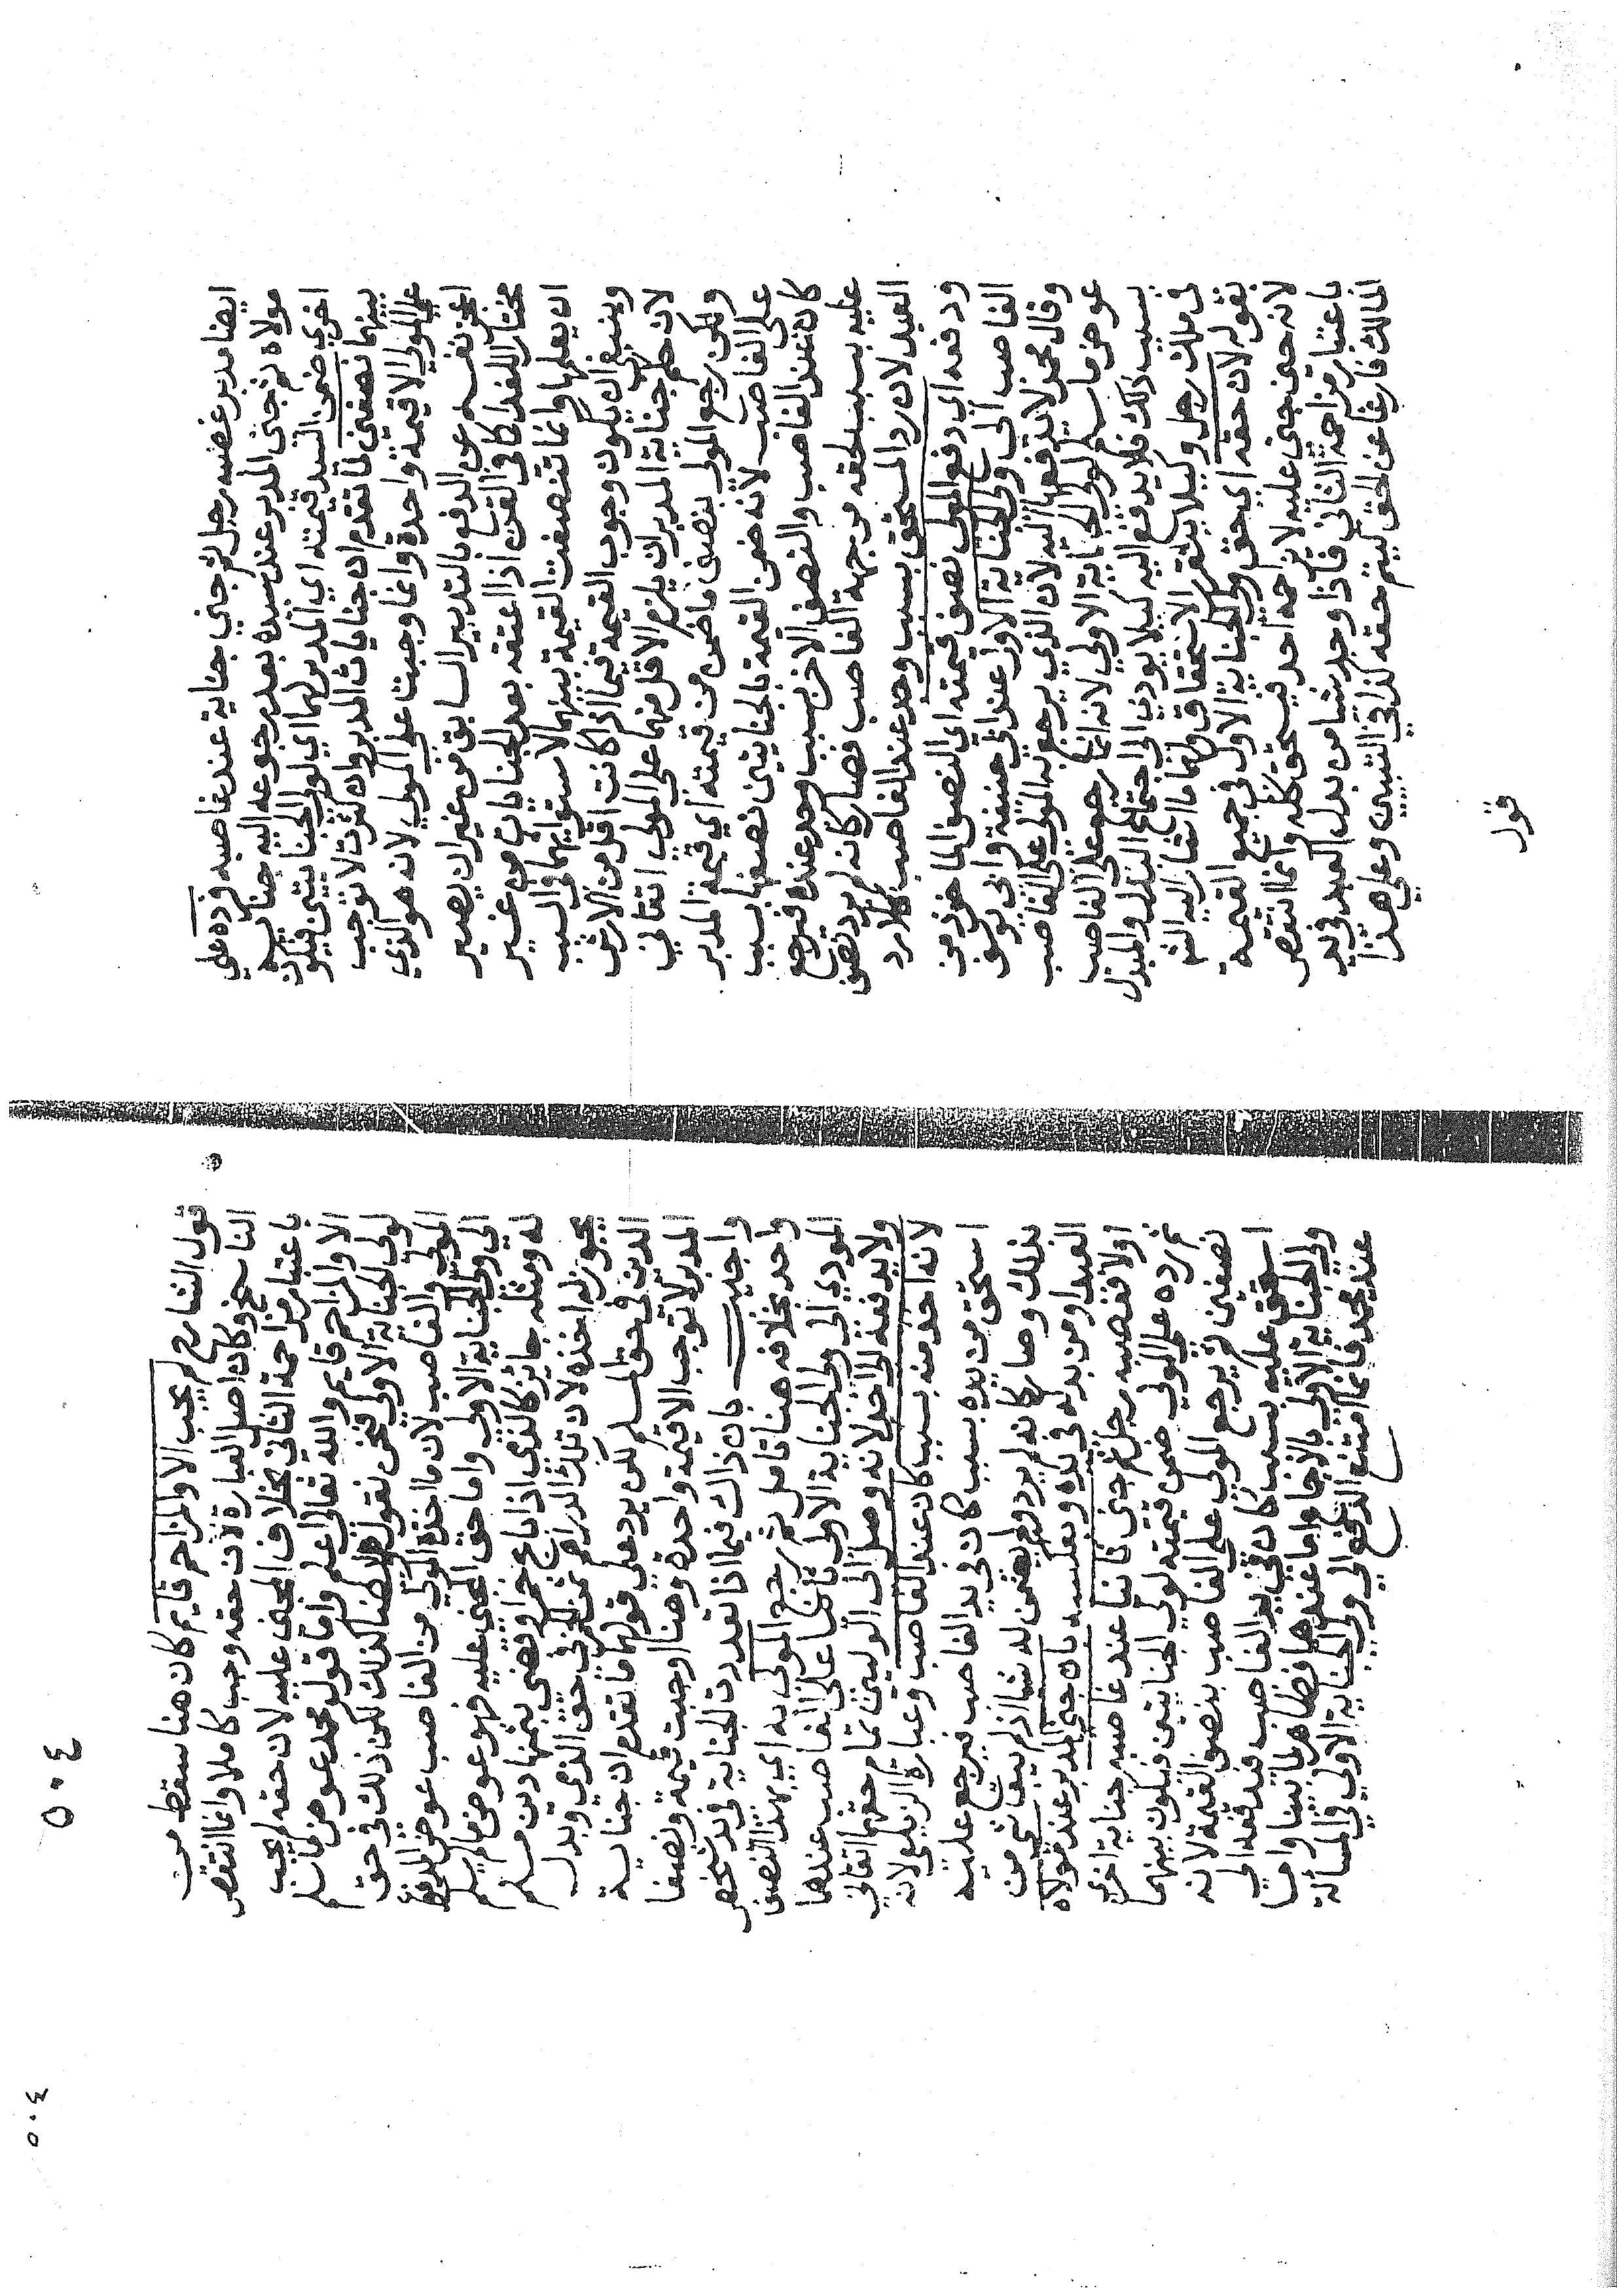 ايضا مدبر غصبه رجل ثم جني جناية عند غاصبه فرده علي
مولاه ثم جني المدبر عند سيده بعد رجوعه اليه جناية
اخري ضمن السيد قيمته اي المدبر لهما اي لولي الجنايتين فيكون
بينهما نصفين لما تقدم ان جنايات المدبر وان كثرت لا توجب
علي المولي الا قيمة واحدة وانما وجبت علي المولي لانه هو الذي
اعجز نفسه عن الدفع بالتدبير السابق من غير ان يصير
مختارا للفدا كما في القن اذا اعتقه بعد الجنايات من غير
ان يعلمها وانما تنصفت القيمة بينهما لاستوايهما في السبب
وينبغي ان يكون وجوب القيمة فيما اذا كانت اقل من الارش
لان حكم جناية المدبر ان يلزم الاقل منهما علي المولي اتقاني
ولكن رجع المولي بنصف ما ضمن من قيمته اي قيمة المدبر
علي الغاصب لانه ضمن القيمة بالجنايتين نصفها بسبب
كان عند الغاصب والنصف الاخر بسبب وجد عنده فيرجع
عليه بسبب لحقه من جهة الغاصب فصار كانه لم يرد نصف
العبد لان رد المستحق بسبب وجد عند الغاصب كلا رد
ودفعه اي دفع المولي نصف قيمته اي النصف الماخوذ من
الغاصب الي ولي الجناية الاول عند ابي حنيفة وابي يوسف
وقال محمد لا يدفعها اليه لان الذي يرجع به المولي علي الغاصب
عوض ما سلم لولي الجناية الاولي لانه انما رجع علي الغاصب
بسبب ذلك فلا يدفع اليه كيلا يودي الي اجتماع البدل والمبدل
في ملك رجل وكيلا يتكرر الاستحقاق ولهما ما اشار اليه الش
بقوله لان حقه اي حق ولي الجناية الاولي في جميع القيمة
لانه حين جني عليه لا يزاحمه احد فيستحق كله وانما انتقص
باعتبار مزاحمة الثاني فاذا وجد شيا من بدل العبد في يد
المالك فارغا عن الحق لييتم حقه كذا في التبيين وعلي هذا
قول
قول الشارح لم يجب الا والمزاحم قايم كان هنا سقط من
الناسخ وكان اصل العبارة لان حقه وجب كاملا وانما انتقص
باعتبار مزاحمة الثاني بخلاف المجني عليه لان حقه لم يجب
الا والمزاحم قايم والله تعالي اعلم واما قول محمد عوض ما سلم
لولي الجناية الاولي فنحن نقول هنا كذلك لكن ذلك في حق
المولي والغاصب لان ما اخذه المولي من الغاصب عوض المدفوع
الي ولي الجناية الاولي واما حق المجني عليه فهو عوض ما لم يسلم
له ومثله جائز كالذمي اذا باع خمرا وقضي بثمنها دين مسلم
يجوز له اخذه لان تلك الدراهم ثمن الخمر في حق الذمي وبدل
الدين في حق المسلم لكن يرد علي قولهما ما تقدم ان جناية
المدبر لا توجب الا قيمة واحدة وهنا اوجبت قيمة ونصفا
واجيب بان ذاك فيما اذا تعددت الجناية في يد شخص
واحد بخلافه هنا تامل ثم رجع المولي به اي بهذا النصف
المودي الي ولي الجناية الاولي ثانيا علي الغاصب عندهما
ولا يدفعه الي احد لانه وصل الي الوليين تمام حقهما اتقاني
لانه اخذ منه بسبب كان عند الغاصب وعبارة الزيلعي لانه
استحق من يده بسبب كان في يد الغاصب فيرجع عليه
بذلك وصار كانه لم يرد ولم يضمن له شيا اذ لم يبق شي من
العبد او من بدله في يده وبعكسه بان جني المدبر عند مولاه
اولا فغصبه رجل ثم جني ثانيا عند غاصبه جناية اخري
ثم رده علي المولي ضمن قيمته لولي الجنايتين فيكون بينهما
نصفين ثم يرجع المولي علي الغاصب بنصف القيمة لانه
استحق عليه بسبب كان في يد الغاصب فيدفعه الي
ولي الجناية الاولي بالاجماع اما عندهما فظاهر لما بينا واما
عند محمد فانما امتنع الدفع الي ولي الجناية الاولي في المسالة
٥٠٤
٥٠٤